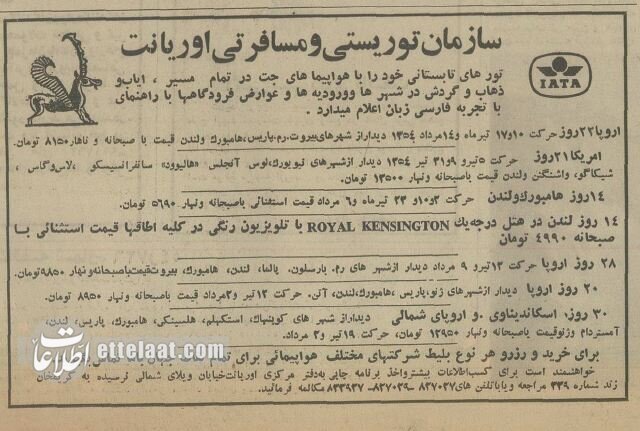 سازمان توریستی و مسافرتی اوریانت
IATA
تور های تابستانی خود را با هواپیما های جت در تمام مسیر ، ایاب و
ذهاب و گردش در شهر ها وورودیه ها و عوارض فرودگاهها با راهنمای
با تجربه فارسی زبان اعلام میدارد .
اروپا۲۲روز حرکت ۱۰و۱۷ تیرماه و۱۴مرداد ۱۳۵۴ دیداراز شهرهای‌بیروت،رم،پاریس،هامبورک ولندن قیمت با صبحانه و ناهار ۸۱۵۰ تومان.
امریکا۲۱روز حرکت ۵تیرو ۹و۳۱ تیر ۱۳۵۴ دیدار ازشهرهای نیویورک،لوس آنجلس «هالیوود» سانفرانسیسکو ،لاس‌وگاس ،
شیکاگو، واشنگتن ولندن قیمت باصبحانه ونهار ۱۳۵۰۰ تومان.
۱۴روز هامبورک‌ولندن حرکت ۳و۱۰و ۲۳ تیرماه و۶ مرداد قیمت استثنائی باصبحانه و نهار ۵۶۹۰ تومان.
۱۴ روز لندن در هتل درجه‌یك ROYAL KENSINGTON با تلویزیون رنگی در کلیه اطاقها قیمت استثنائی بـا
صبحانه ۴۹۹۰ تومان
۲۸ روز اروپا حرکت ۱۳تیرو ۹ مرداد دیدار ازشهر های رم، بارسلون، پالما، لندن، هامبورک، بیروت‌قیمت‌باصبحانه‌ونهار ۹۸۵۰تومان.
۲۰ روز اروپا دیدار ازشهرهای ژنو،پاریس ،هامبورک،لندن، آتن. حرکت ۱۳ تیر و۲مرداد قیمت باصبحانه ونهار ۸۹۵۰ تومان.
۳۰ روزه، اسکاندیناوی .و اروپای شمالی دیداراز شهر های کوپنهاک، استکهلم، هلسینکی، هامبورک، پاریس، لندن،
آمستردام وژنوقیمت باصبحانه ونهار ۱۲۹۵۰ تومان، حرکت ۱۹ تیر و۲ مرداد.
برای خرید و رزرو هر نوع بلیط شرکتهای مختلف هواپیمائی برای
خواهشمند است برای کسب‌اطلاعات بیشترواخذ برنامه چاپی به‌دفتر مرکزی اوریانت‌خیابان ویلای شمالی نرسیده به کریمخان
زند شماره ۳۳۹ مراجعه و یاباتلفن های ۸۲۷۰۲۷- ۸۲۷۰۲۹- ۸۳۳۹۳۷ مکالمه فرمائید.
اطلاعات ettelaat.com